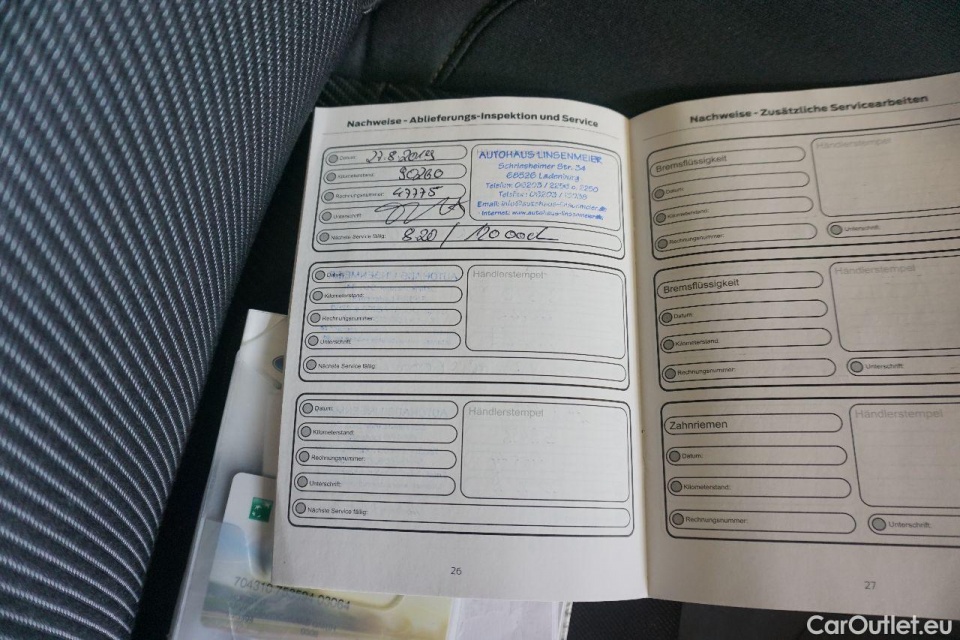 Nachweise - Ablieferungs-Inspektion und Service
Datum: 27.8.2019
Kilometerstand: 90260
Rechnungsnummer: 47775
Unterschrift:
Nächste Service fällig: 8.20 / 120000
AUTOHAUS LINGENMEIER
Schriesheimer Str. 34
68526 Ladenburg
Telefon: 06203 / 2256 o. 2250
Telefax: 06203 /
Email: info@autohaus-lingenmeier.de
Internet: www.autohaus-lingenmeier.de
Datum:
Kilometerstand:
Rechnungsnummer:
Unterschrift:
Nächste Service fällig:
Händlerstempel
Datum:
Kilometerstand:
Rechnungsnummer:
Unterschrift:
Nächste Service fällig:
Händlerstempel
26
Nachweise - Zusätzliche Servicearbeiten
Bremsflüssigkeit
Datum:
Kilometerstand:
Rechnungsnummer:
Händlerstempel
Unterschrift:
Bremsflüssigkeit
Datum:
Kilometerstand:
Rechnungsnummer:
Händlerstempel
Unterschrift:
Zahnriemen
Datum:
Kilometerstand:
Rechnungsnummer:
Händlerstempel
Unterschrift:
27
704310
CarOutlet.eu